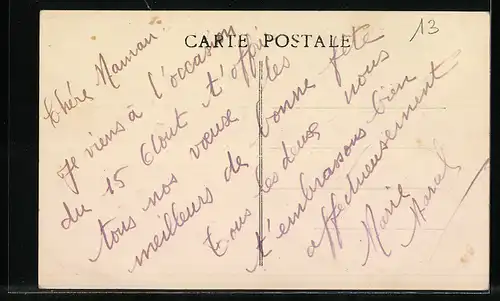 CARTE POSTALE
13
Chére Maman.
je viens à l'occasion
du 15 Aout t'offrir
tous nos vœux les
meilleurs de bonne fête
tous les deux nous
t'embrassons bien
affectueusement
Marie
Marcel